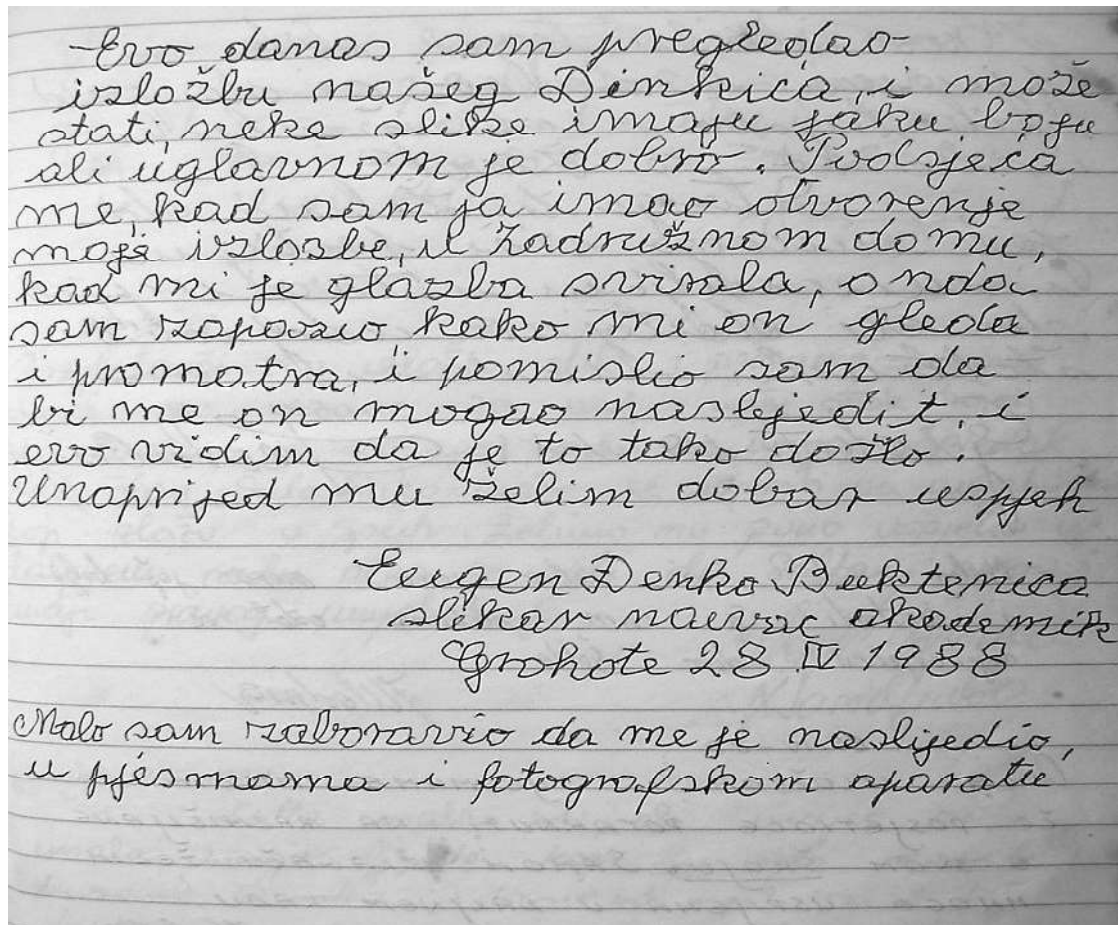 Evo danas sam pregledao
izložbu našeg Dinkića, i može
stati, neke slike imaju jaku boju
ali uglavnom je dobro. Podsjeća
me, kad sam ja imao otvorenje
moje izlosbe, u Zadružnom domu,
kad mi je glazba svirala, onda
sam zapazio, kako mi on gleda
i promatra, i pomislio sam da
bi me on mogao naslijedit, i
evo vidim da je to tako došlo.
Unaprijed mu želim dobar uspjeh
Eugen Denko Buktenica
slikar naivac akademik
Grohote 28 IV 1988
Malo sam zaboravio da me je naslijedio,
u pjesmama i fotografskom aparatu